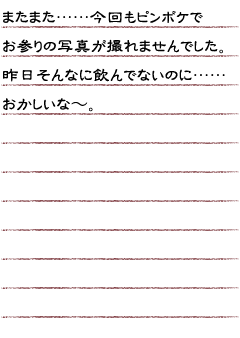 またまた……今回もピンボケで
お参りの写真が撮れませんでした。
昨日そんなに飲んでないのに……
おかしいな～。